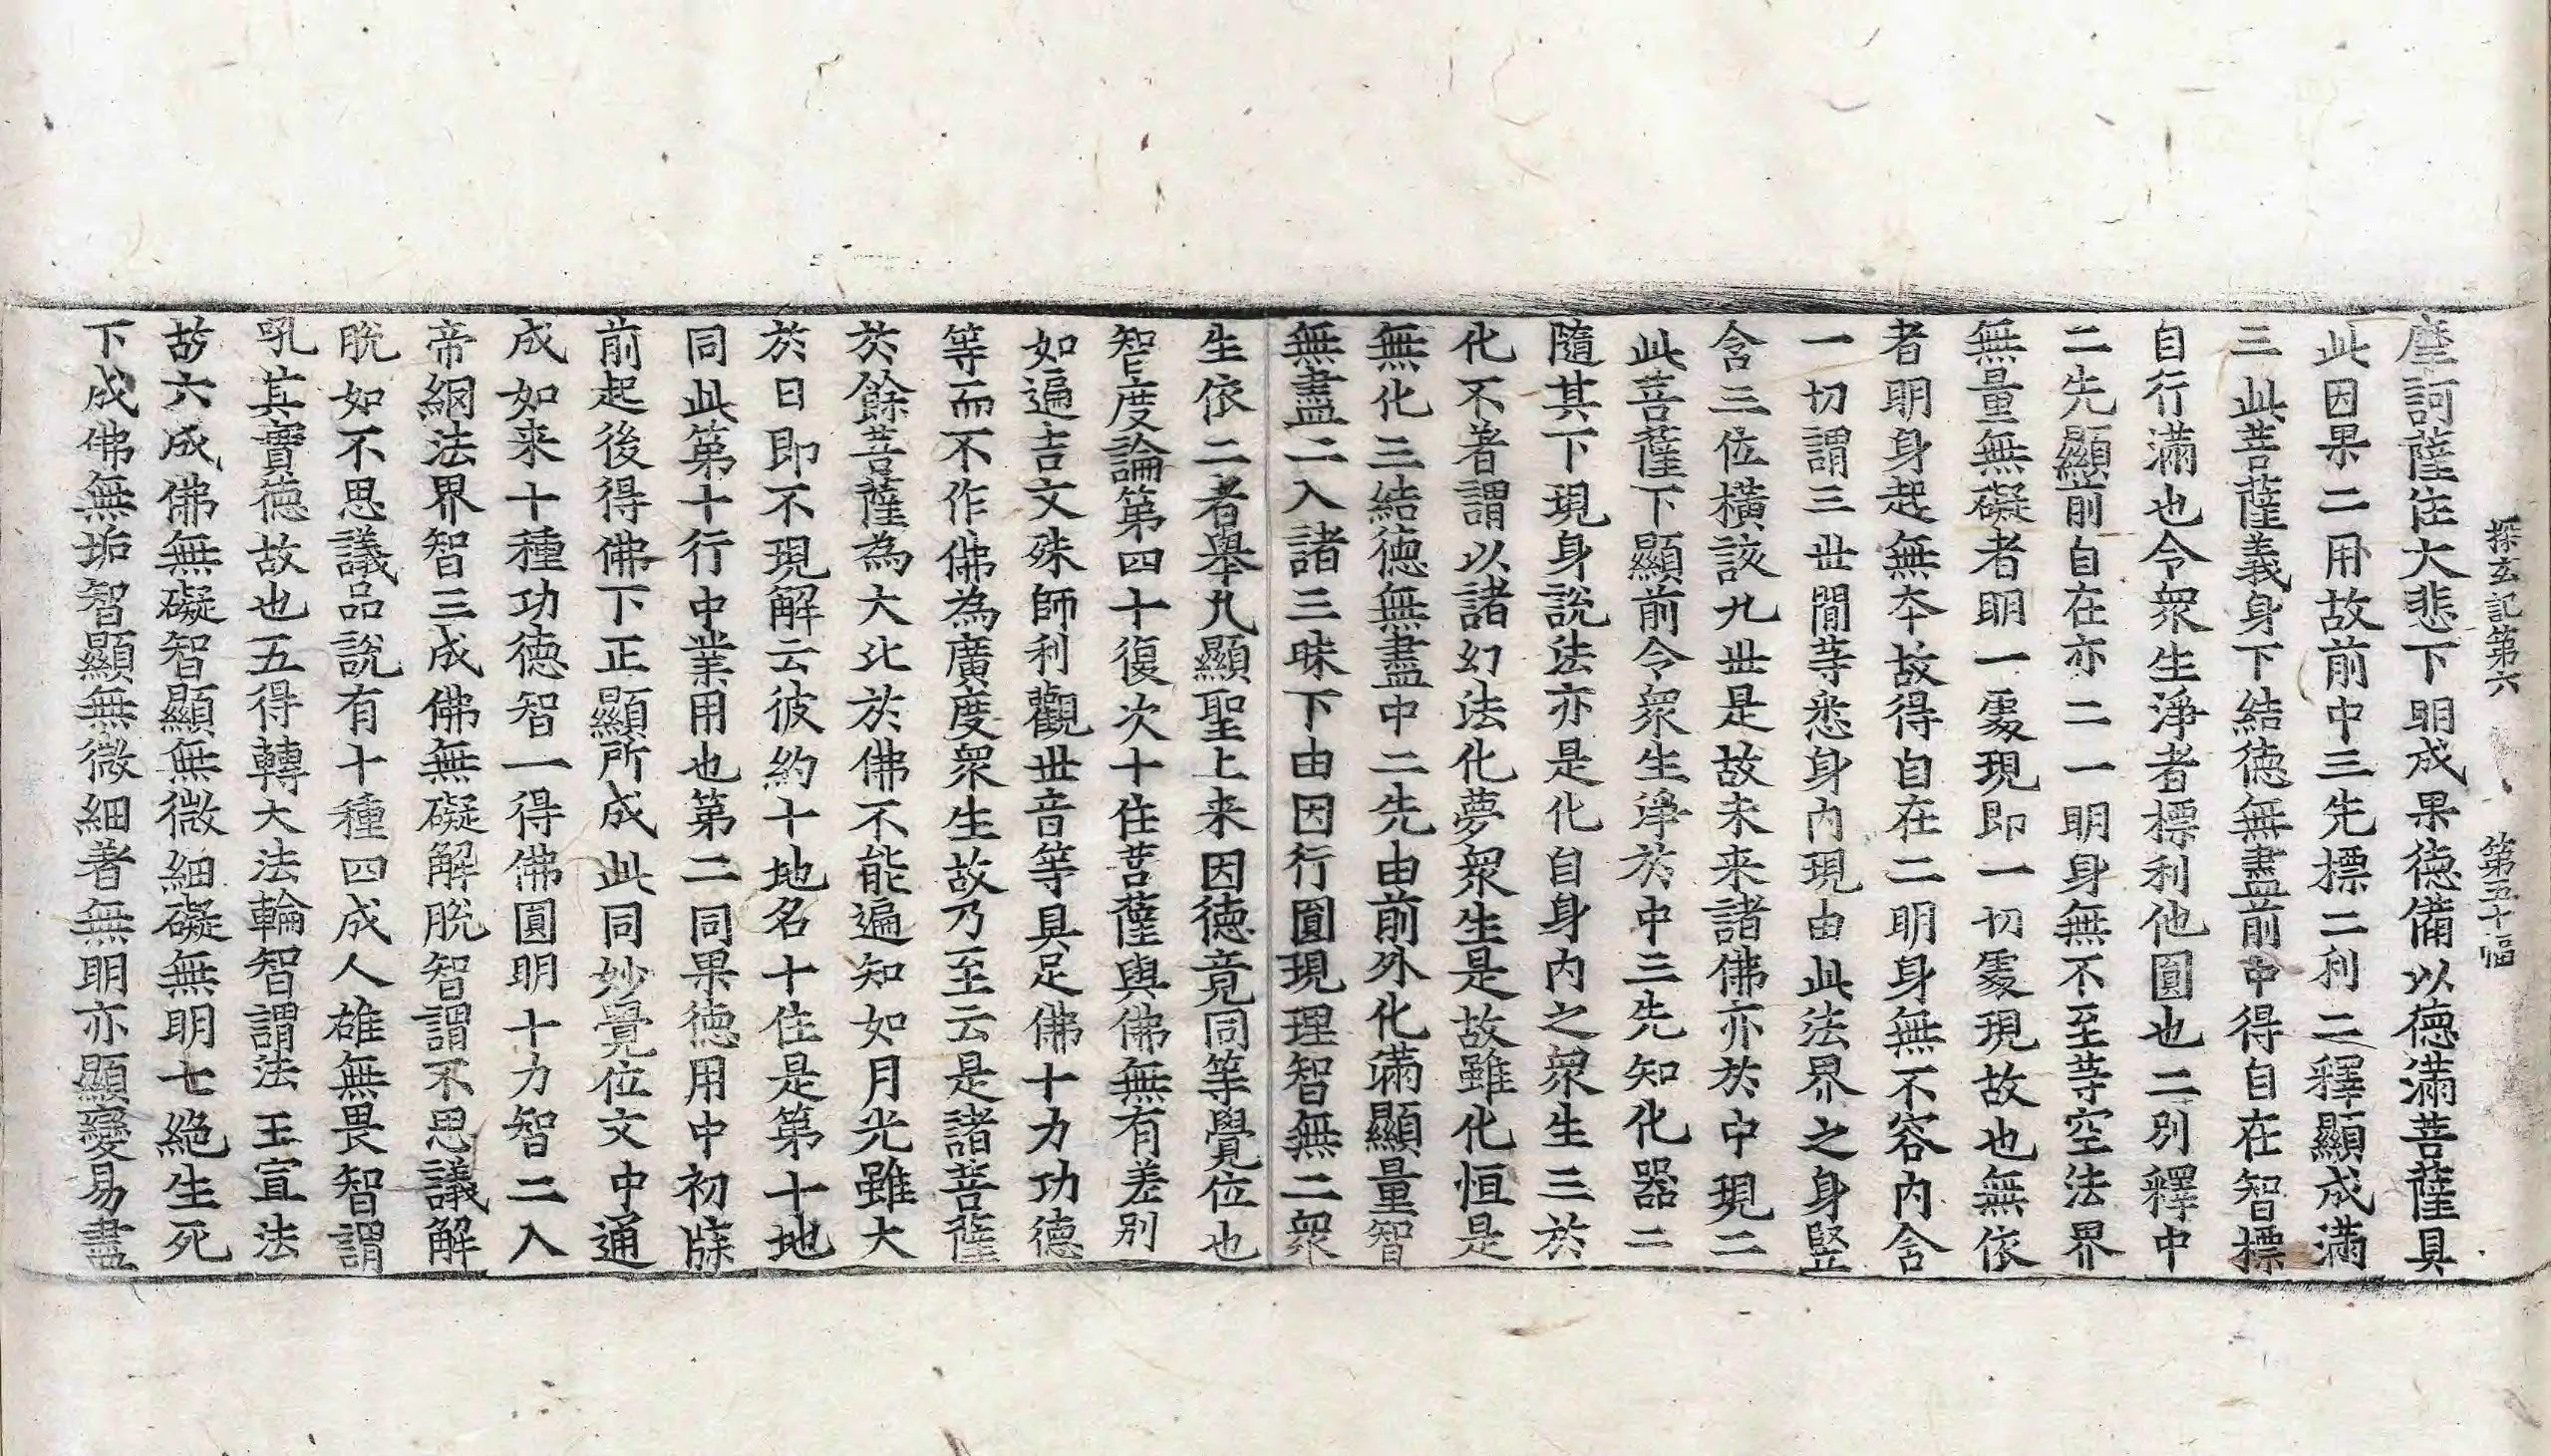 探玄記第六 第五十幅
摩訶薩住大悲下明成果德備以德滿菩薩具
此因果二用故前中三先標二利二釋顯成滿
三此菩薩義身下結德無盡前中得自在智標
自行滿也令眾生淨者標利他圓也二別釋中
二先顯前自在亦二一明身無不至等空法界
無量無礙者明一處現即一切處現故也無依
者明身起無本故得自在二明身無不容內含
一切謂三世間等悉身內現由此法界之身竪
含三位橫該九世是故未来諸佛亦於中現二
此菩薩下顯前令眾生淨於中三先知化器二
隨其下現身說法亦是化自身內之眾生三於
化不著謂以諸幻法化夢眾生是故雖化恒是
無化三結德無盡中二先由前外化滿顯量智
無盡二入諸三昧下由因行圓現理智無二眾
生依二者舉凡顯聖上来因德竟同等覺位也
智度論第四十復次十住菩薩與佛無有差別
如遍吉文殊師利觀世音等具足佛十力功德
等而不作佛為廣度眾生故乃至云是諸菩薩
於餘菩薩為大比於佛不能遍知如月光雖大
於日即不現解云彼約十地名十住是第十地
同此第十行中業用也第二同果德用中初牒
前起後得佛下正顯所成此同妙覺位文中通
成如来十種功德智一得佛圓明十力智二入
帝網法界智三成佛無礙解脫智謂不思議解
脫如不思議品說有十種四成人雄無畏智謂
吼其實德故也五得轉大法輪智謂法王宣法
故六成佛無礙智顯無微細礙無明七絕生死
下成佛無垢智顯無微細著無明亦顯變易盡